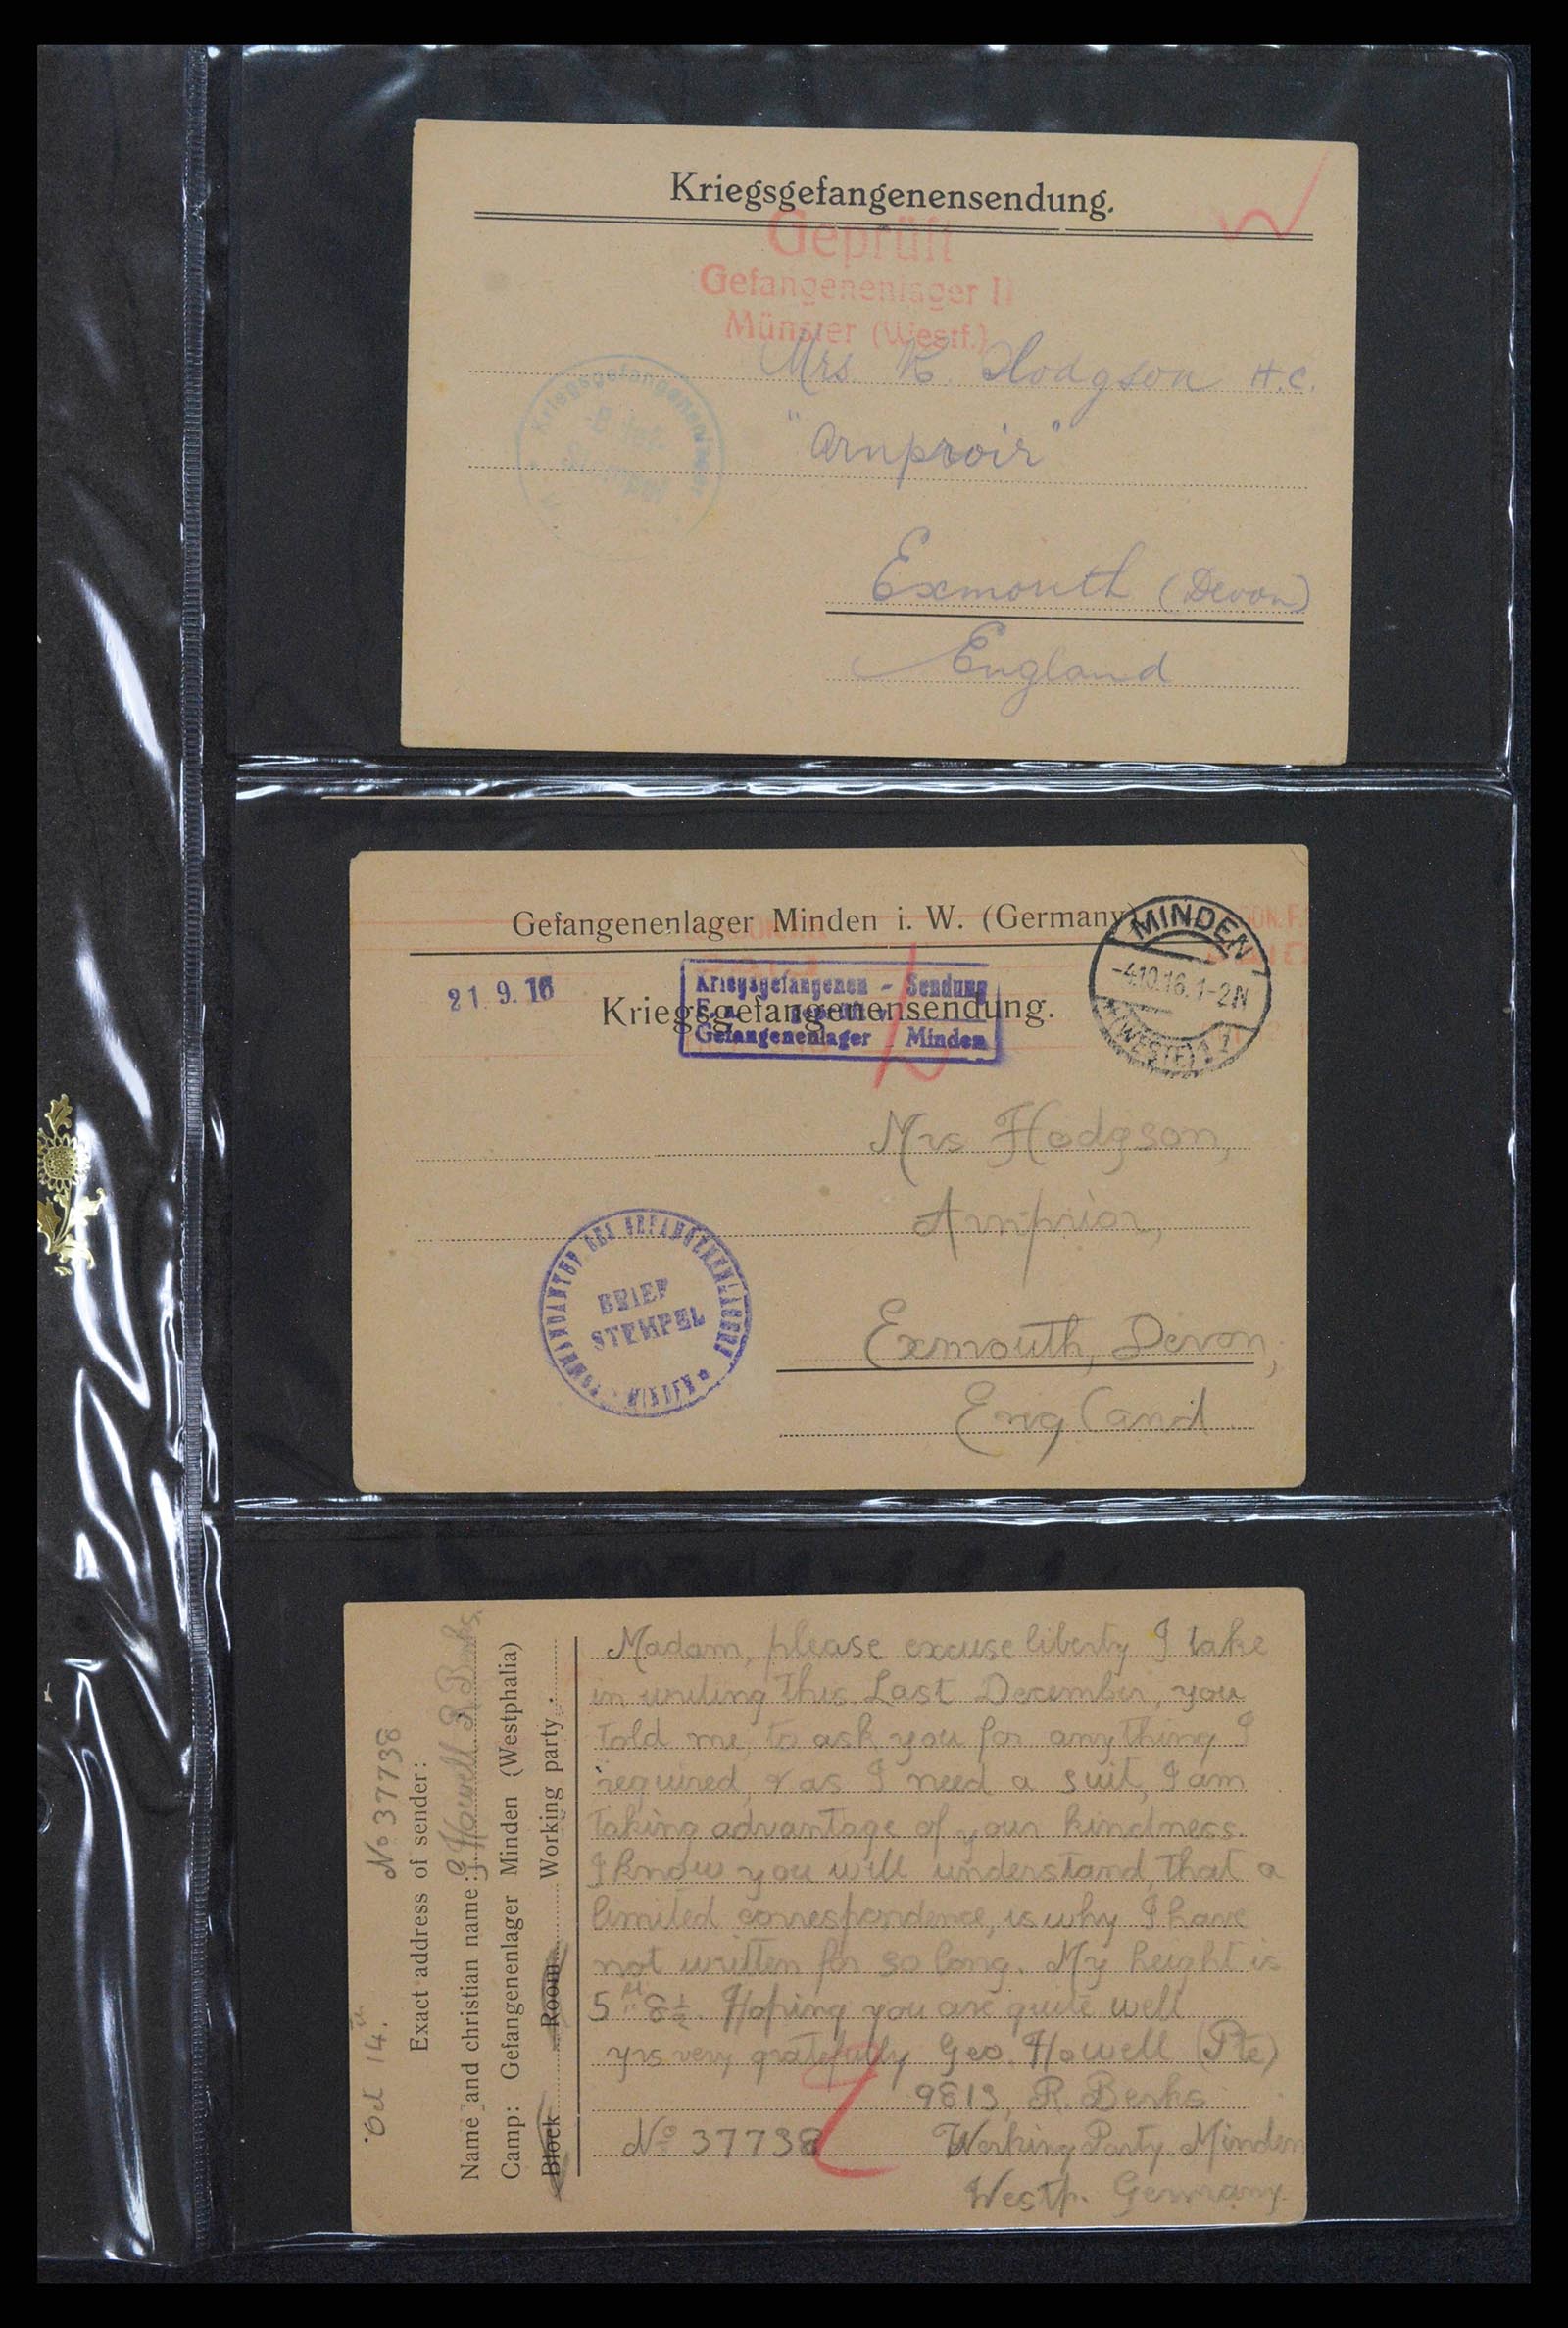 Kriegsgefangenensendung.
Geprüft
Gefangenenlager II
Münster (Westf.)
Mrs K. Hodgson H.C.
"Arnproir"
Exmouth (Devon)
England
Kriegsgefangenenlager
Gefangenenlager Minden i. W. (Germany)
21 9. 16
Kriegsgefangenen - Sendung
Kriegsgefangenensendung.
Gefangenenlager Minden
MINDEN
-4.10.16. 1-2N
(WESTF)
Mrs Hodgson,
Arnprior,
Exmouth, Devon,
England.
KOMMANDANTUR DES GEFANGENENLAGERS
BRIEF
STEMPEL
MINDEN
Oct 14th. No 37738
Exact address of sender:
Name and christian name: G Howell R Berks.
Camp: Gefangenenlager Minden (Westphalia)
Block Room Working party.
Madam, please excuse liberty I take
in writing this. Last December, you
told me, to ask you for anything I
required, & as I need a suit, I am
taking advantage of your kindness.
I know you will understand, that a
limited correspondence, is why I have
not written for so long. My height is
5 ft 8½. Hoping you are quite well
yrs very gratefully Geo. Howell (Pte)
9813, R. Berks
No 37738 Working Party Minden
Westp. Germany.